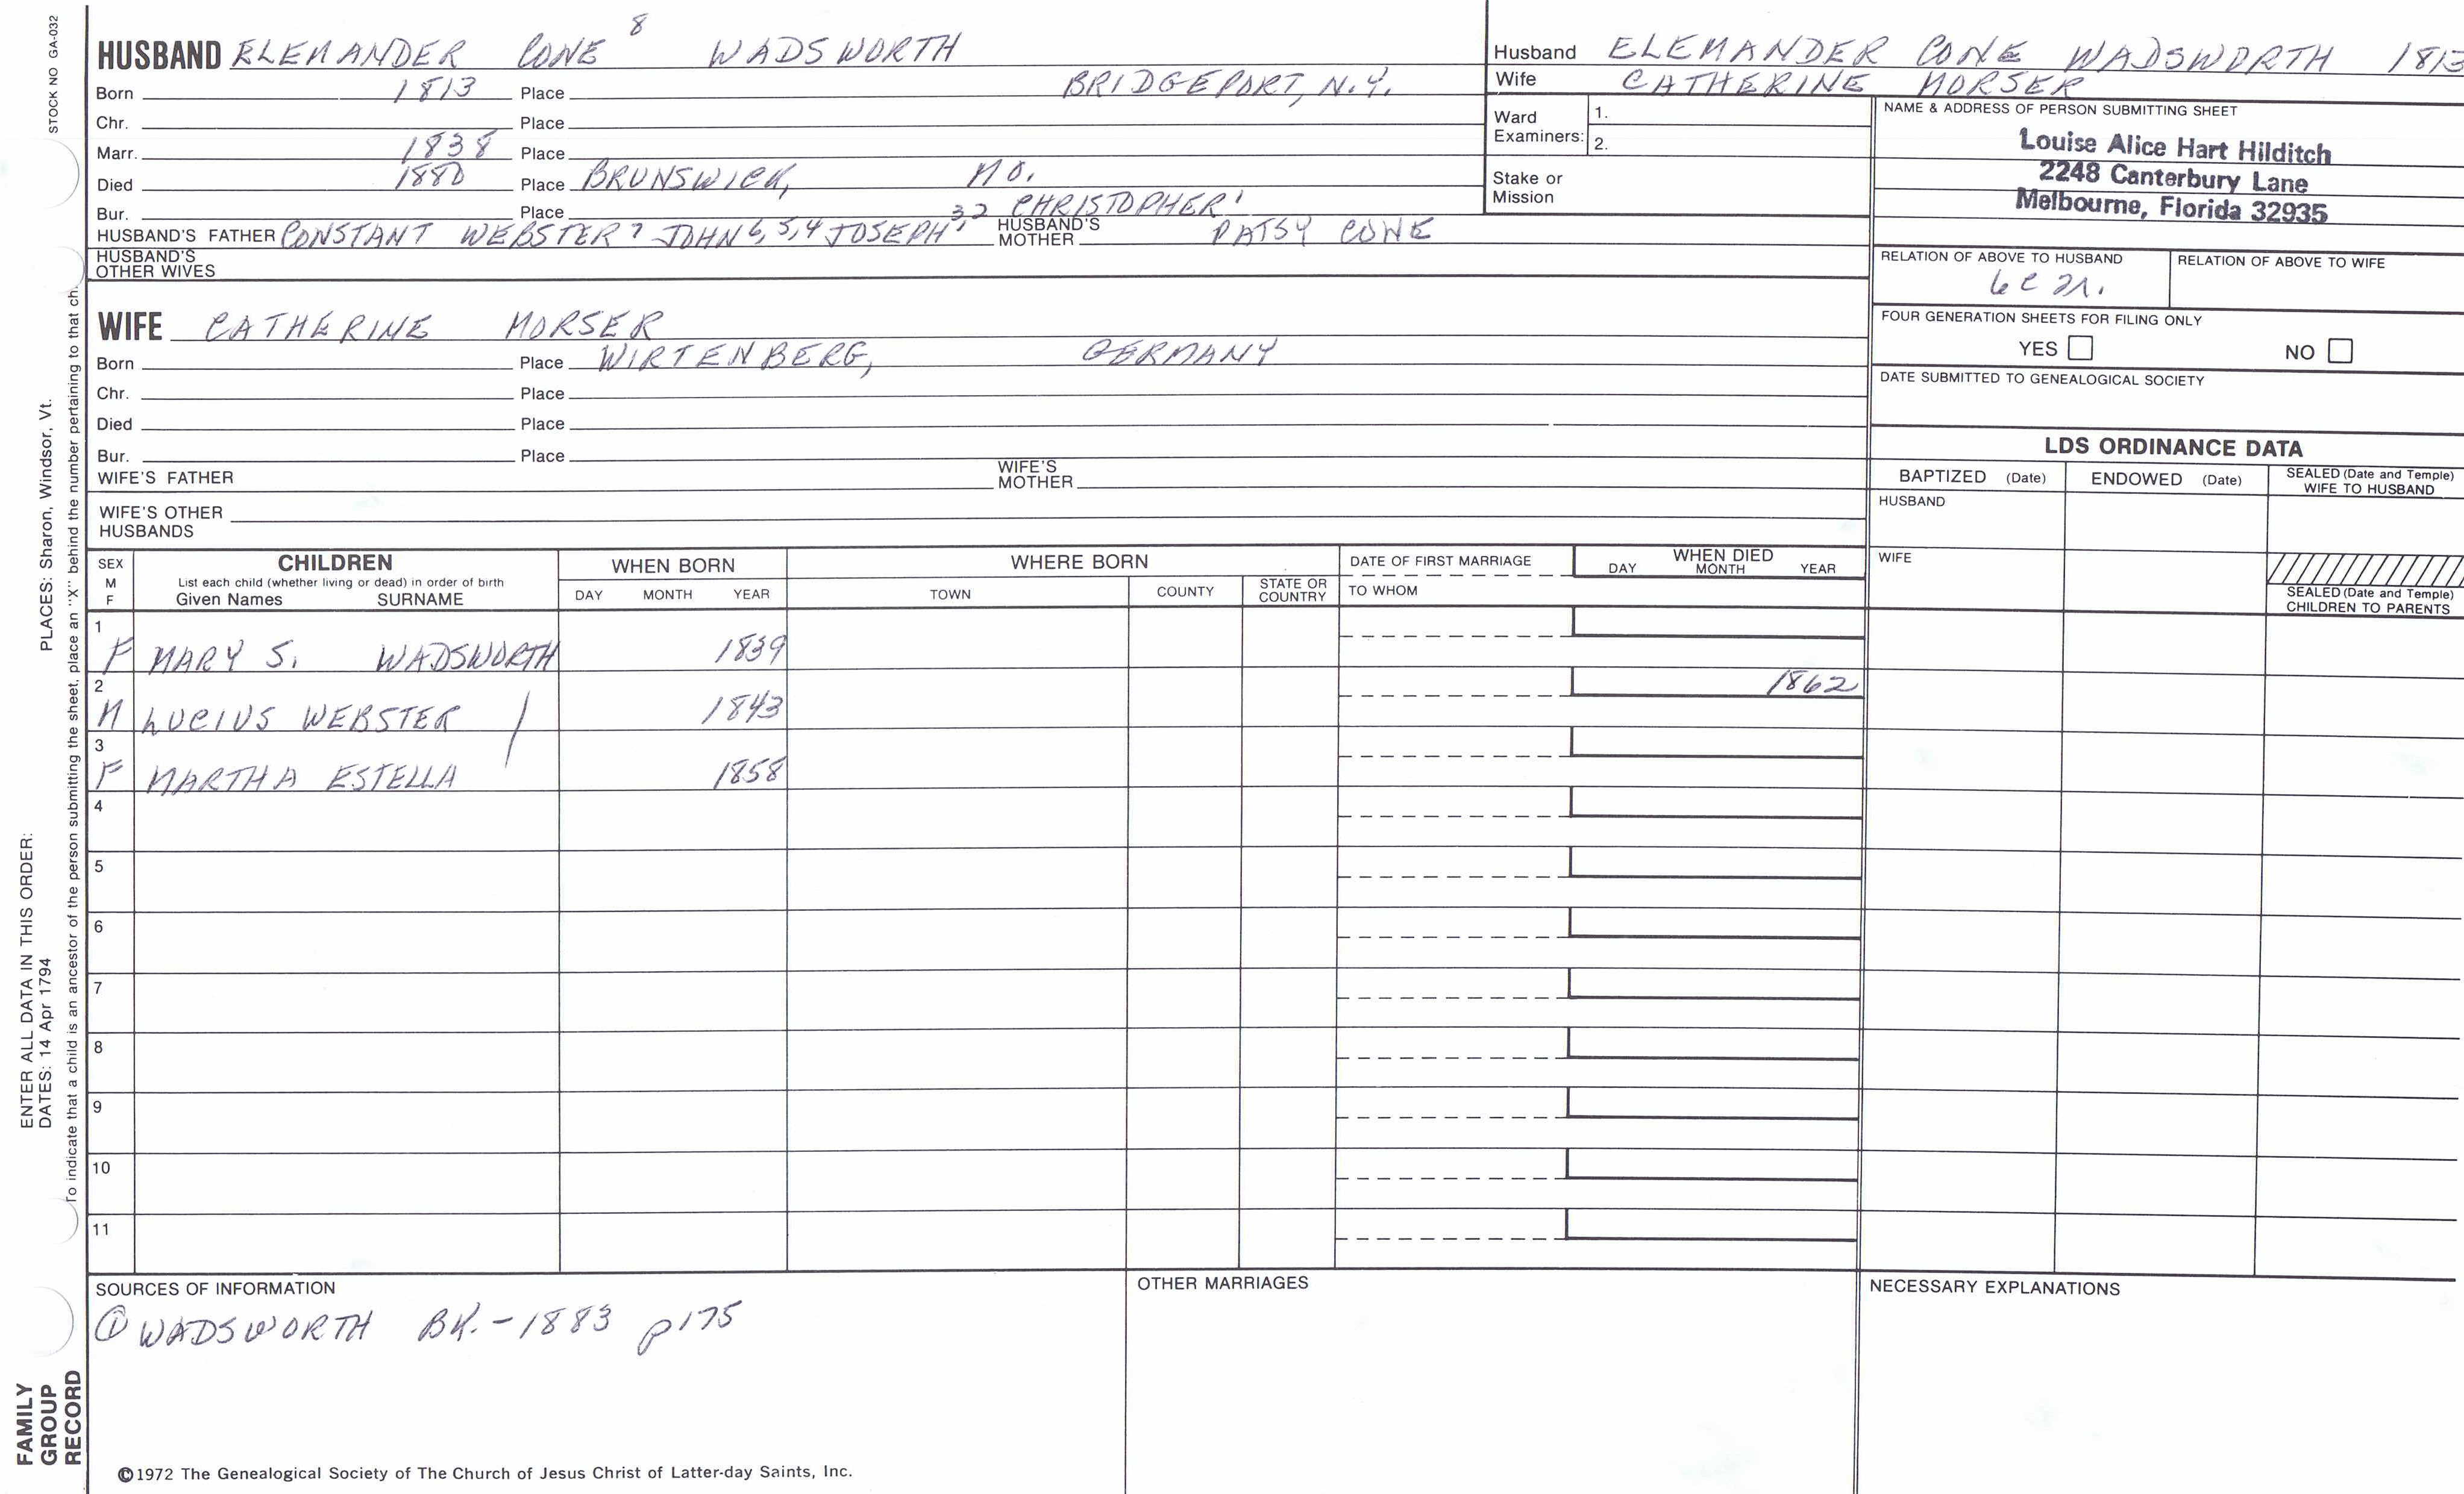 STOCK NO GA-032
HUSBAND ELEMANDER CONE 8 WADSWORTH
Born 1813 Place BRIDGEPORT, N.Y.
Chr. Place
Marr. 1838 Place
Died 1880 Place BRUNSWICK, MO.
Bur. Place
HUSBAND'S FATHER CONSTANT WEBSTER 7 JOHN 6,5,4 JOSEPH 3, 2 CHRISTOPHER 1 HUSBAND'S MOTHER PATSY CONE
HUSBAND'S OTHER WIVES
WIFE CATHERINE MORSER
Born Place WIRTENBERG, GERMANY
Chr. Place
Died Place
Bur. Place
WIFE'S FATHER WIFE'S MOTHER
WIFE'S OTHER HUSBANDS
Husband ELEMANDER CONE WADSWORTH 1813
Wife CATHERINE MORSER
Ward Examiners: 1.
2.
Stake or Mission
NAME & ADDRESS OF PERSON SUBMITTING SHEET
Louise Alice Hart Hilditch
2248 Canterbury Lane
Melbourne, Florida 32935
RELATION OF ABOVE TO HUSBAND RELATION OF ABOVE TO WIFE
6C
FOUR GENERATION SHEETS FOR FILING ONLY
YES NO
DATE SUBMITTED TO GENEALOGICAL SOCIETY
LDS ORDINANCE DATA
BAPTIZED (Date) ENDOWED (Date) SEALED (Date and Temple) WIFE TO HUSBAND
HUSBAND
WIFE
SEALED (Date and Temple) CHILDREN TO PARENTS
SEX M F CHILDREN WHEN BORN WHERE BORN DATE OF FIRST MARRIAGE WHEN DIED
List each child (whether living or dead) in order of birth
Given Names SURNAME DAY MONTH YEAR TOWN COUNTY STATE OR COUNTRY TO WHOM DAY MONTH YEAR
1 F MARY S. WADSWORTH 1839
2 M LUCIUS WEBSTER / 1843 1862
3 F MARTHA ESTELLA 1858
4
5
6
7
8
9
10
11
SOURCES OF INFORMATION
① WADSWORTH BK.-1883 p175
OTHER MARRIAGES
NECESSARY EXPLANATIONS
©1972 The Genealogical Society of The Church of Jesus Christ of Latter-day Saints, Inc.
FAMILY GROUP RECORD
ENTER ALL DATA IN THIS ORDER:
DATES: 14 Apr 1794 PLACES: Sharon, Windsor, Vt.
To indicate that a child is an ancestor of the person submitting the sheet, place an "X" behind the number pertaining to that ch.